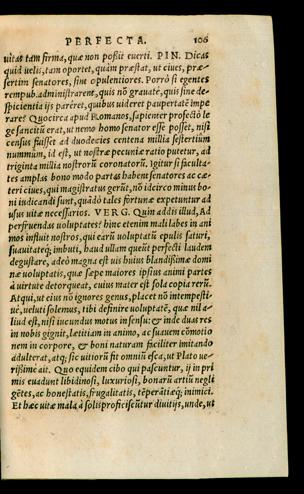 PERFECTA. 106
uitas tam firma, quæ non poßit euerti. PIN. Dicas
quid uelis, tam oportet, quàm præstat, ut ciues, præ-
sertim senatores, sint opulentiores. Porrò si egentes
rempub. administrarent, quis nõ grauatè, quis sine de-
spicientia ijs pareret, quibus uideret paupertatẽ impe
rare? Quocirca apud Romanos, sapienter profectò le
ge sancitũ erat, ut nemo homo senator esse posset, nisi
census fuisset ad duodecies centena millia sestertium
nummûm, id est, ut nostræ pecuniæ ratio putetur, ad
triginta millia nostrorũ coronatorũ. Igitur si faculta-
tes amplas bono modo partas habent senatores ac cæ-
teri ciues, qui magistratus gerũt, nõ idcirco minus bo-
ni iudicandi sunt, quãdo tales fortunæ expetuntur ad
usus uitæ necessarios. VERG. Quin addis illud, Ad
perfruendas uoluptates? hinc etenim mali labes in ani
mos influit nostros, qui earũ uoluptatũ epulis saturi,
suauitateq; imbuti, haud ullam queũt perfecti laudem
degustare, adeò magna est uis huius blandißimæ domi
næ uoluptatis, quæ sæpe maiores ipsius animi partes
à uirtute detorqueat, cuius mater est sola copia rerũ.
Atqui, ut eius nõ ignores genus, placet nõ intempesti-
uè, ueluti solemus, tibi definire uoluptatẽ, quæ nil a-
liud est, nisi iucundus motus in sensu: & inde duas res
in nobis gignit, lætitiam in animo, ac suauem cõmotio
nem in corpore, & boni naturam faciliter imitando
adulterat, atq; sic uitiorũ fit omniũ esca, ut Plato ue-
rißimè ait. Quo equidem cibo qui pascuntur, ij in pri
mis euadunt libidinosi, luxuriosi, bonarũ artiũ negli
gẽtes, ac honestatis, frugalitatis, tẽperãtiæq; inimici.
Et hæc uitæ mala à solis proficiscũtur diuitijs, unde, ut